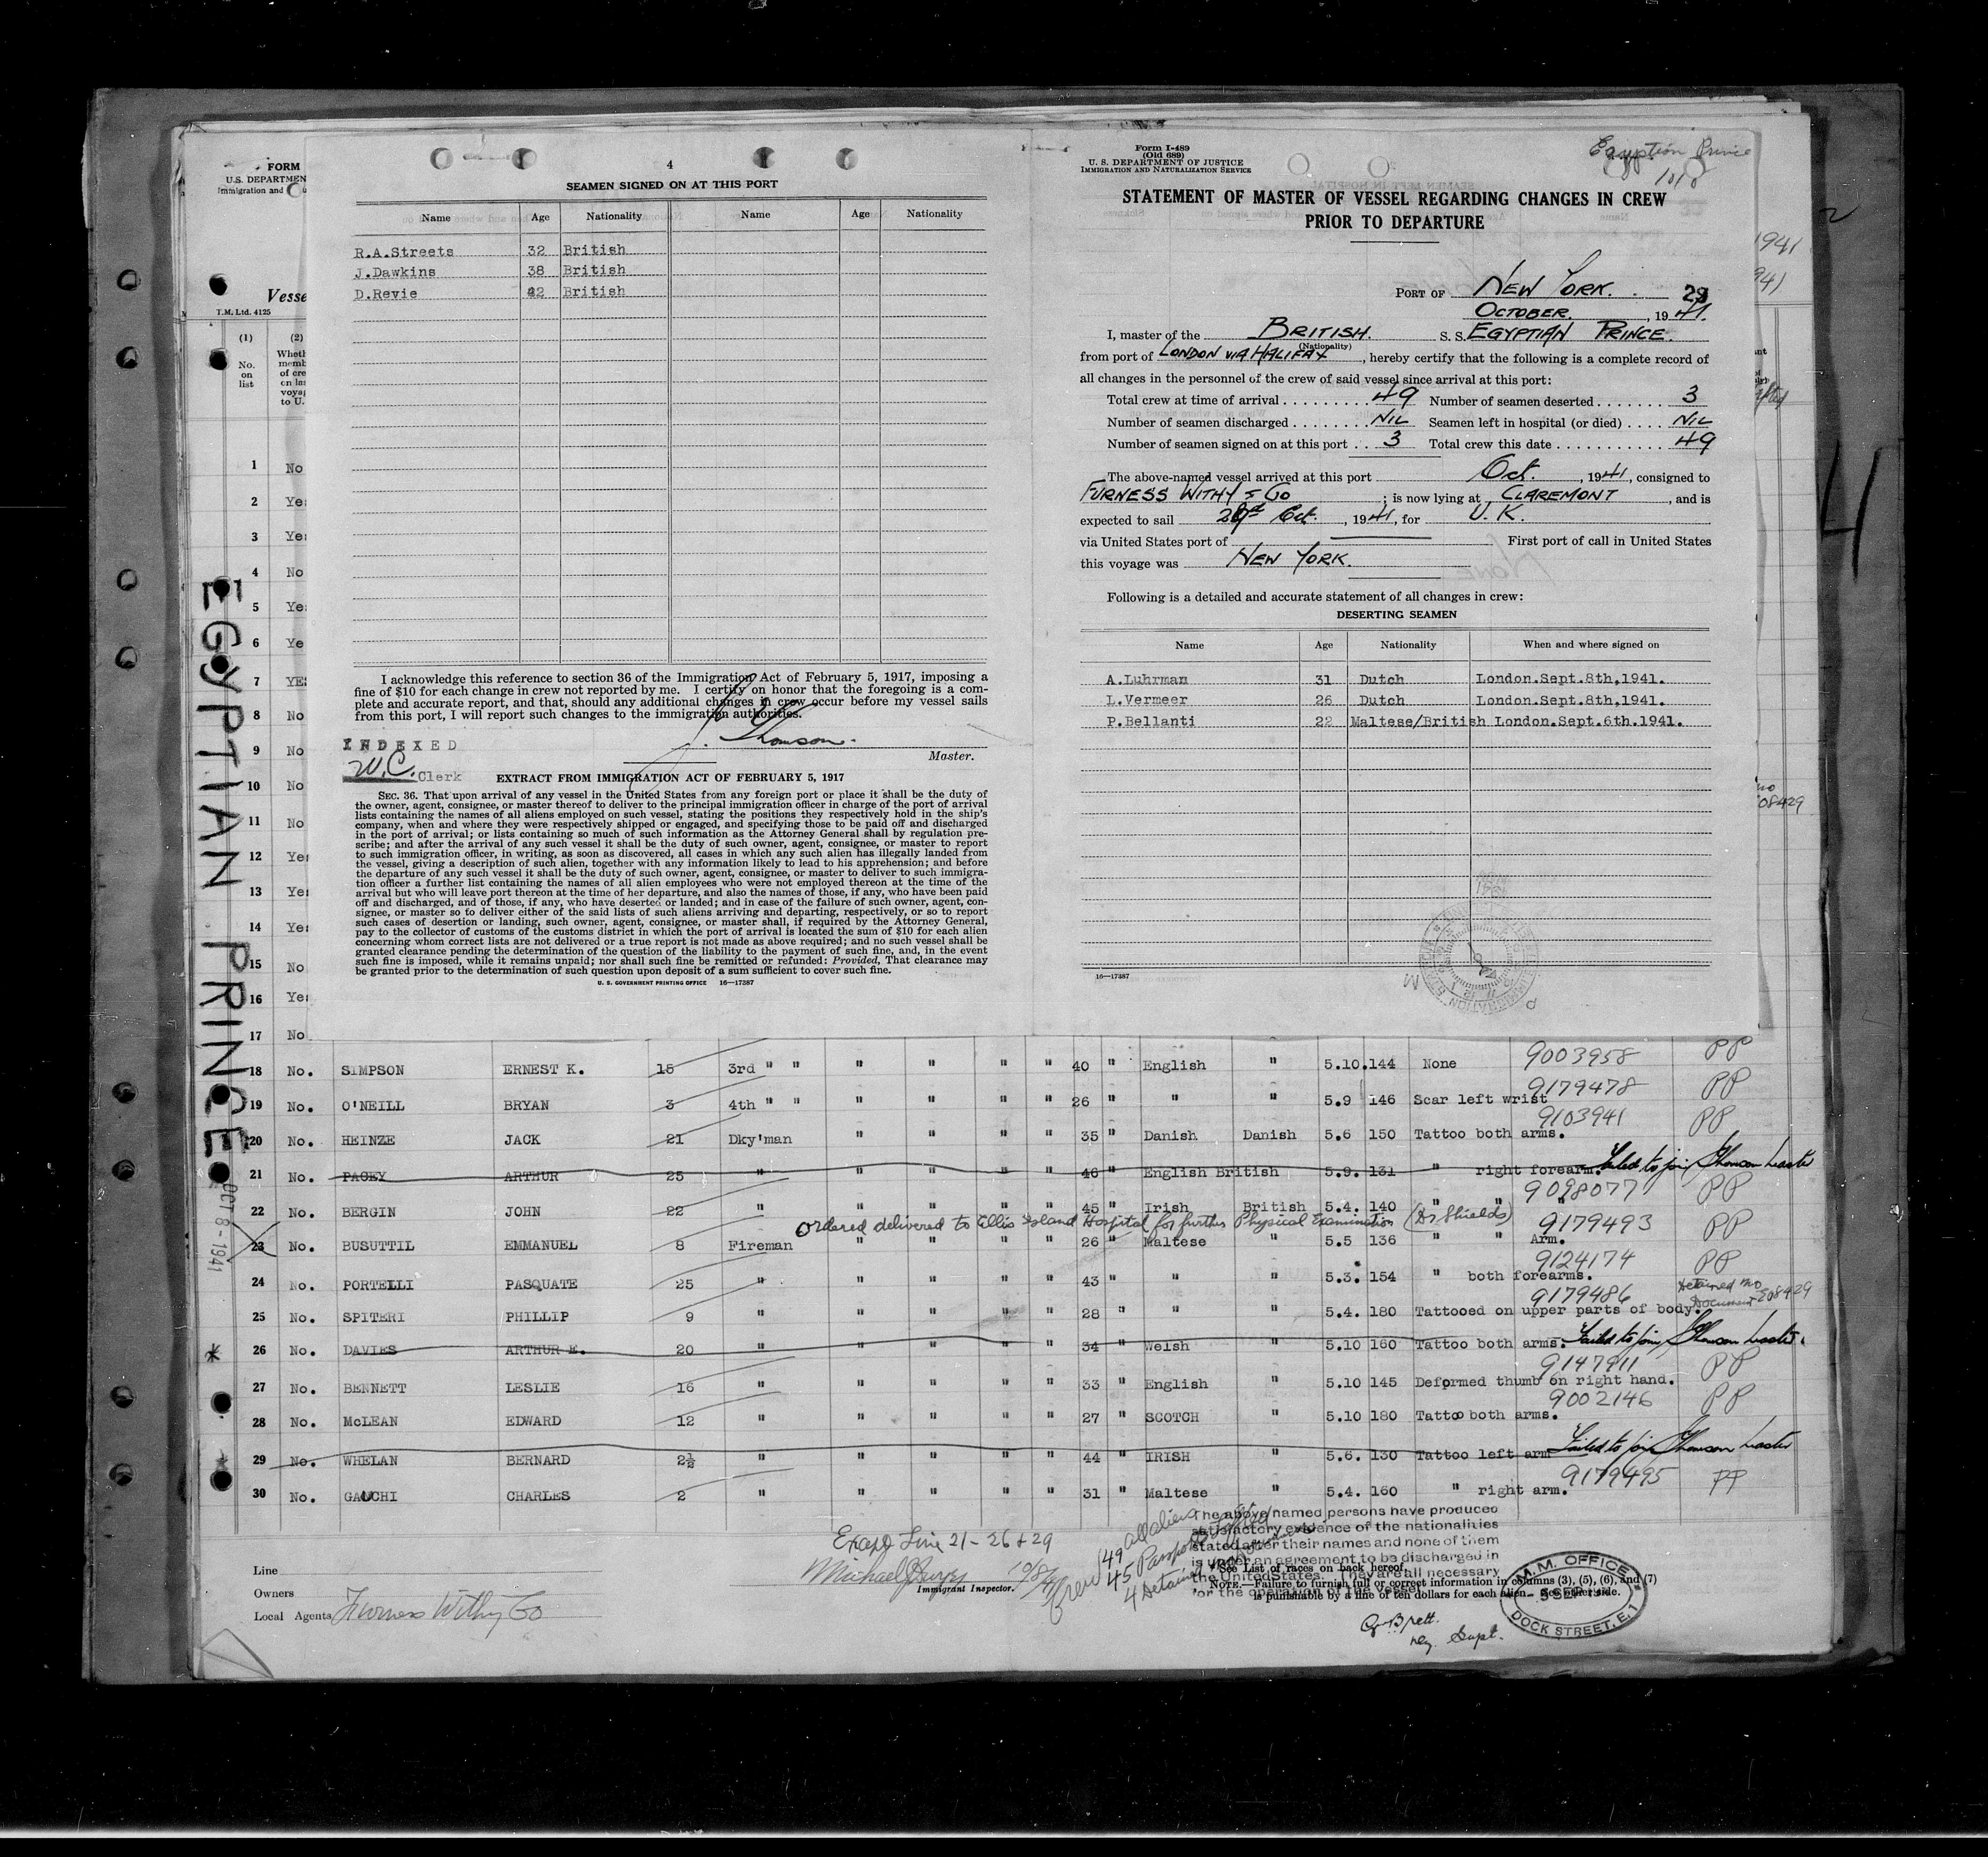 FORM
U.S. DEPARTMEN
Immigration and
Vesse
T.M. Ltd. 4125
(1) (2)
No. on list
Wheth
memb
of cre
on las
voyag
to U.
1 No
2 Ye
3 Ye
4 No
5 Ye
6 Ye
7 YE
8 No
9 No
10 No
11 No
12 Ye
13 Ye
14 Ye
15 No
16 Ye
17 No
EGYPTIAN PRINCE
OCT 8-1941
4
SEAMEN SIGNED ON AT THIS PORT
Name Age Nationality Name Age Nationality
R.A.Streets 32 British
J.Dawkins 38 British
D.Revie 42 British
I acknowledge this reference to section 36 of the Immigration Act of February 5, 1917, imposing a
fine of $10 for each change in crew not reported by me. I certify on honor that the foregoing is a com-
plete and accurate report, and that, should any additional changes in crew occur before my vessel sails
from this port, I will report such changes to the immigration authorities.
Thomson.
Master.
INDEXED
W.C. Clerk
EXTRACT FROM IMMIGRATION ACT OF FEBRUARY 5, 1917
SEC. 36. That upon arrival of any vessel in the United States from any foreign port or place it shall be the duty of
the owner, agent, consignee, or master thereof to deliver to the principal immigration officer in charge of the port of arrival
lists containing the names of all aliens employed on such vessel, stating the positions they respectively hold in the ship's
company, when and where they were respectively shipped or engaged, and specifying those to be paid off and discharged
in the port of arrival; or lists containing so much of such information as the Attorney General shall by regulation pre-
scribe; and after the arrival of any such vessel it shall be the duty of such owner, agent, consignee, or master to report
to such immigration officer, in writing, as soon as discovered, all cases in which any such alien has illegally landed from
the vessel, giving a description of such alien, together with any information likely to lead to his apprehension; and before
the departure of any such vessel it shall be the duty of such owner, agent, consignee, or master to deliver to such immigra-
tion officer a further list containing the names of all alien employees who were not employed thereon at the time of the
arrival but who will leave port thereon at the time of her departure, and also the names of those, if any, who have been paid
off and discharged, and of those, if any, who have deserted or landed; and in case of the failure of such owner, agent, con-
signee, or master so to deliver either of the said lists of such aliens arriving and departing, respectively, or so to report
such cases of desertion or landing, such owner, agent, consignee, or master shall, if required by the Attorney General,
pay to the collector of customs of the customs district in which the port of arrival is located the sum of $10 for each alien
concerning whom correct lists are not delivered or a true report is not made as above required; and no such vessel shall be
granted clearance pending the determination of the question of the liability to the payment of such fine, and, in the event
such fine is imposed, while it remains unpaid; nor shall such fine be remitted or refunded: Provided, That clearance may
be granted prior to the determination of such question upon deposit of a sum sufficient to cover such fine.
U. S. GOVERNMENT PRINTING OFFICE 16—17387
Form I-489
(Old 689)
U. S. DEPARTMENT OF JUSTICE
IMMIGRATION AND NATURALIZATION SERVICE
Egyption Prince
10/8
STATEMENT OF MASTER OF VESSEL REGARDING CHANGES IN CREW
PRIOR TO DEPARTURE
PORT OF NEW YORK. 29
OCTOBER. , 1941.
I, master of the BRITISH. S. S. EGYPTIAN PRINCE.
(Nationality)
from port of LONDON VIA HALIFAX, hereby certify that the following is a complete record of
all changes in the personnel of the crew of said vessel since arrival at this port:
Total crew at time of arrival 49 Number of seamen deserted 3
Number of seamen discharged NIL Seamen left in hospital (or died) NIL
Number of seamen signed on at this port 3 Total crew this date 49
The above-named vessel arrived at this port Oct. , 1941, consigned to
FURNESS WITHY & CO ; is now lying at CLAREMONT, and is
expected to sail Oct. , 1941, for U.K.
via United States port of First port of call in United States
this voyage was NEW YORK.
Following is a detailed and accurate statement of all changes in crew:
DESERTING SEAMEN
Name Age Nationality When and where signed on
A.Luhrman 31 Dutch London.Sept.8th,1941.
L.Vermeer 26 Dutch London.Sept.8th,1941.
P.Bellanti 22 Maltese/British London.Sept.6th.1941.
16—17387
1941
941
08429
4
18 No. SIMPSON ERNEST K. 15 3rd " " " " " " 40 " English " 5.10. 144 None 9003958 PP
19 No. O'NEILL BRYAN 3 4th " " " " " " 26 " " " 5.9 146 Scar left wrist 9179478 PP
20 No. HEINZE JACK 21 Dky'man " " " " 35 " Danish Danish 5.6 150 Tattoo both arms. 9103941 PP
21 No. PACEY ARTHUR 25 " " " " " 46 " English British 5.9. 131 " right forearm. Failed to join Thomson Master
22 No. BERGIN JOHN 22 " " " " " 45 " Irish British 5.4. 140 " " " 9098077 PP
Ordered delivered to Ellis Island Hospital for further Physical Examination (Dr Shields)
23 No. BUSUTTIL EMMANUEL 8 Fireman " " " " 26 " Maltese " 5.5 136 " " Arm. 9179493 PP
24 No. PORTELLI PASQUATE 25 " " " " " 43 " " " 5.3. 154 " both forearms. 9124174 PP
25 No. SPITERI PHILLIP 9 " " " " " 28 " " " 5.4. 180 Tattooed on upper parts of body. 9179486 Detained no Document 508429
26 No. DAVIES ARTHUR E. 20 " " " " " 34 " Welsh " 5.10 160 Tattoo both arms. Failed to join Thomson Master.
27 No. BENNETT LESLIE 16 " " " " " 33 " English " 5.10 145 Deformed thumb on right hand. 9147911 PP
28 No. McLEAN EDWARD 12 " " " " " 27 " SCOTCH " 5.10 180 Tattoo both arms. 9002146 PP
29 No. WHELAN BERNARD 2½ " " " " " 44 " IRISH " 5.6. 130 Tattoo left arm Failed to join Thomson Master
30 No. GAUCHI CHARLES 2 " " " " " 31 " Maltese " 5.4. 160 " right arm. 9179495 PP
Except Line 21-26+29
Immigrant Inspector.
Crew 49 all aliens
45 Passports
4 Detained
The above named persons have produced
satisfactory evidence of the nationalities
stated after their names and none of them
is under an agreement to be discharged in
the United States. They are all necessary
for the operation of the vessel
See List of races on back hereof
NOTE.—Failure to furnish full or correct information in columns (3), (5), (6), and (7)
is punishable by a fine of ten dollars for each alien. See other side.
Line
Owners
Local Agents Furness Withy Co
Brett.
Supt.
M.M. OFFICE
5 SEP
DOCK STREET, E.1